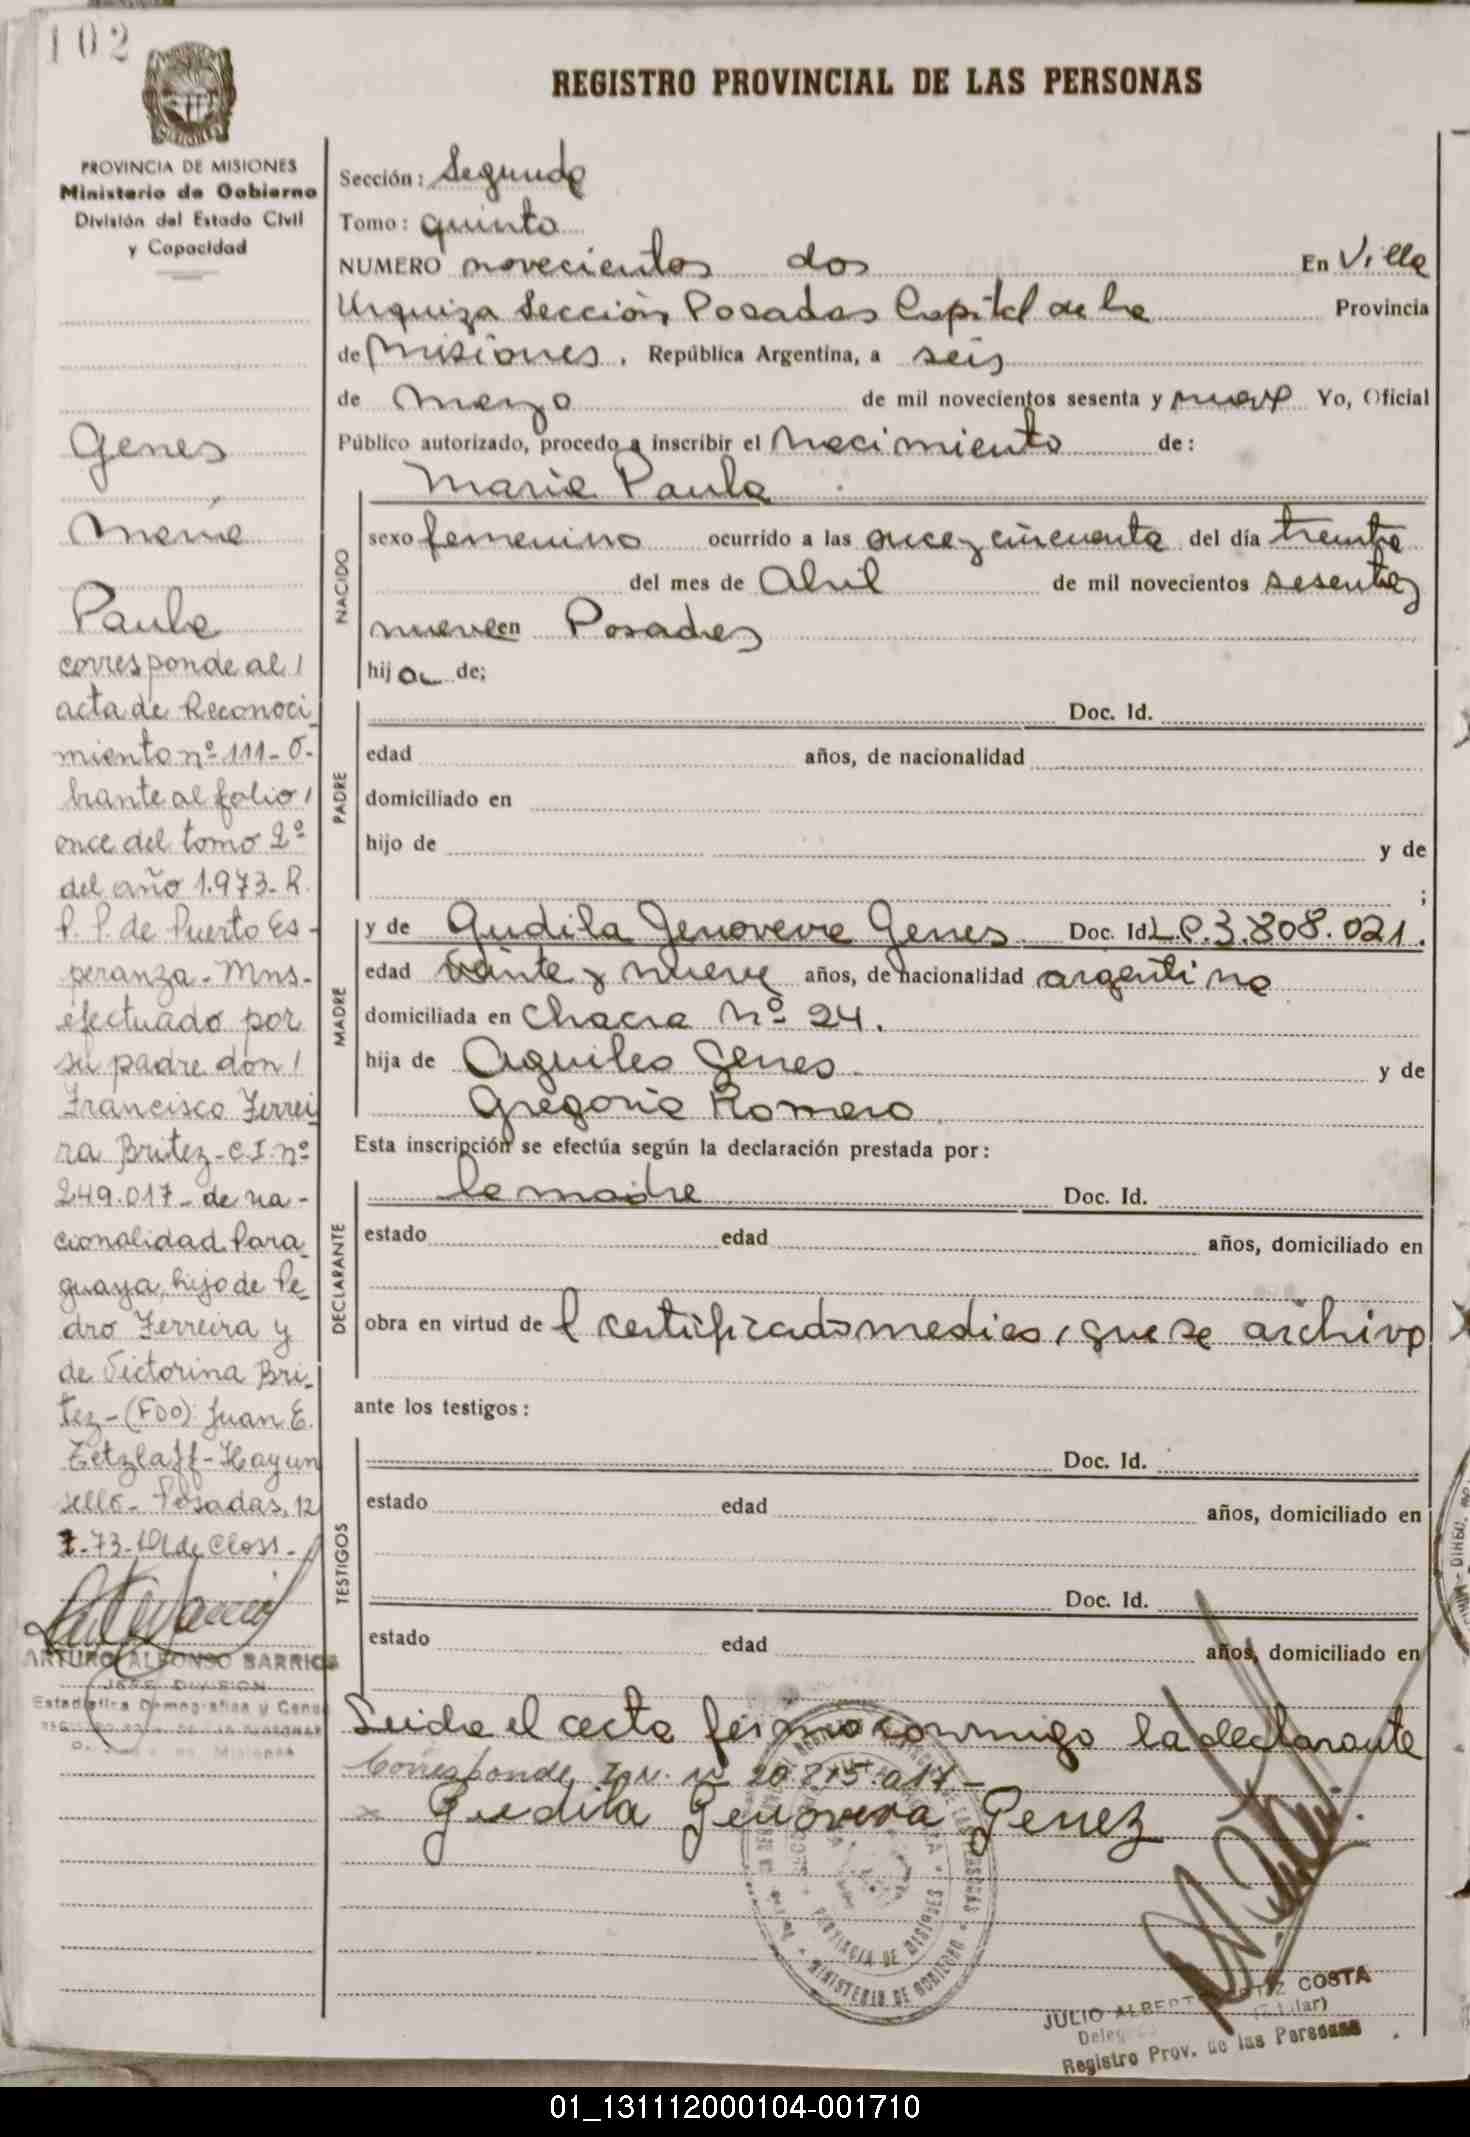 102
REGISTRO PROVINCIAL DE LAS PERSONAS
PROVINCIA DE MISIONES
Ministerio de Gobierno
División del Estado Civil
y Capacidad
Genes
Maria
Paula
corresponde al /
acta de Reconoci
miento nº 111 - O-
brante al folio /
once del tomo 2º
del año 1.973 - R.
P. P. de Puerto Es-
peranza - Mns-
efectuado por
su padre don /
Francisco Ferrei
ra Britez - C.I. nº
249.017 - de na-
cionalidad Para-
guaya, hijo de Pe-
dro Ferreira y
de Victorina Bri-
tez - (FDO) Juan E.
Tetzlaff - Hay un
sello - Posadas, 12
7-73-
ARTURO ALFONSO BARRIOS
JEFE DIVISION
Sección: Segunda
Tomo: quinto
NUMERO novecientos dos En Villa
Urquiza Sección Posadas Capital de la Provincia
de Misiones, República Argentina, a seis
de mayo de mil novecientos sesenta y nueve Yo, Oficial
Público autorizado, procedo a inscribir el nacimiento de:
Maria Paula
NACIDO
sexo femenino ocurrido a las once y cincuenta del día treinta
del mes de Abril de mil novecientos sesenta y
nueve en Posadas
hija de;
PADRE
Doc. Id.
edad años, de nacionalidad
domiciliado en
hijo de y de
;
MADRE
y de Gudila Genoveva Genes Doc. Id. L.C. 3.808.021.
edad veinte y nueve años, de nacionalidad argentina
domiciliada en Chacra Nº 24.
hija de Aquiles Genes y de
Gregoria Romero
Esta inscripción se efectúa según la declaración prestada por:
DECLARANTE
la madre Doc. Id.
estado edad años, domiciliado en
obra en virtud de l certificado medico, que se archiva
ante los testigos:
TESTIGOS
Doc. Id.
estado edad años, domiciliado en
Doc. Id.
estado edad años, domiciliado en
Leida el acta firma conmigo la declarante
Corresponde 20.815.017-
Gudila Genoveva Genez
PROVINCIA DE MISIONES
MINISTERIO DE GOBIERNO
JULIO ALBERTO COSTA
(Titular)
Registro Prov. de las Personas
01_131112000104-001710